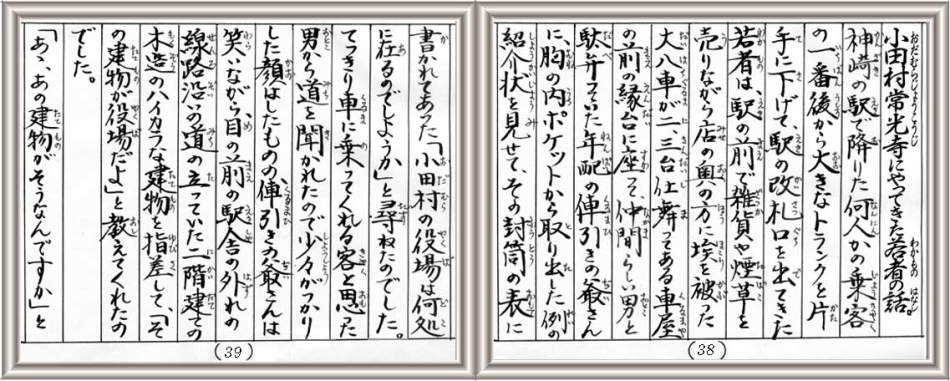 小田村常光寺にやってきた若者の話。
神崎の駅で降りた何人かの乗客
の一番後から大きなトランクを片
手に下げて駅の改札口を出てきた
若者は、駅の前で雑貨や煙草を
売りながら店の奥の方に埃を被った
大八車が二、三台仕舞ってある車屋
の前の縁台に座って仲間らしい男と
駄弁っていた年配の俥引きの爺さん
に、胸の内ポケットから取り出した例の
紹介状を見せて、その封筒の表に
(38)
書かれてあった「小田村の役場は何処
に在るのでしょうか」と尋ねたのでした。
てっきり車に乗ってくれる客と思った
男から道を聞かれたので少々がっかり
した顔はしたものの、俥引きの爺さんは
笑いながら、目の前の駅舎の外れの
線路沿いの道の立っていた二階建ての
木造のハイカラな建物を指差して、「そ
の建物が役場だよ」と教えてくれたの
でした。
「あゝ、あの建物がそうなんですか」と
(39)